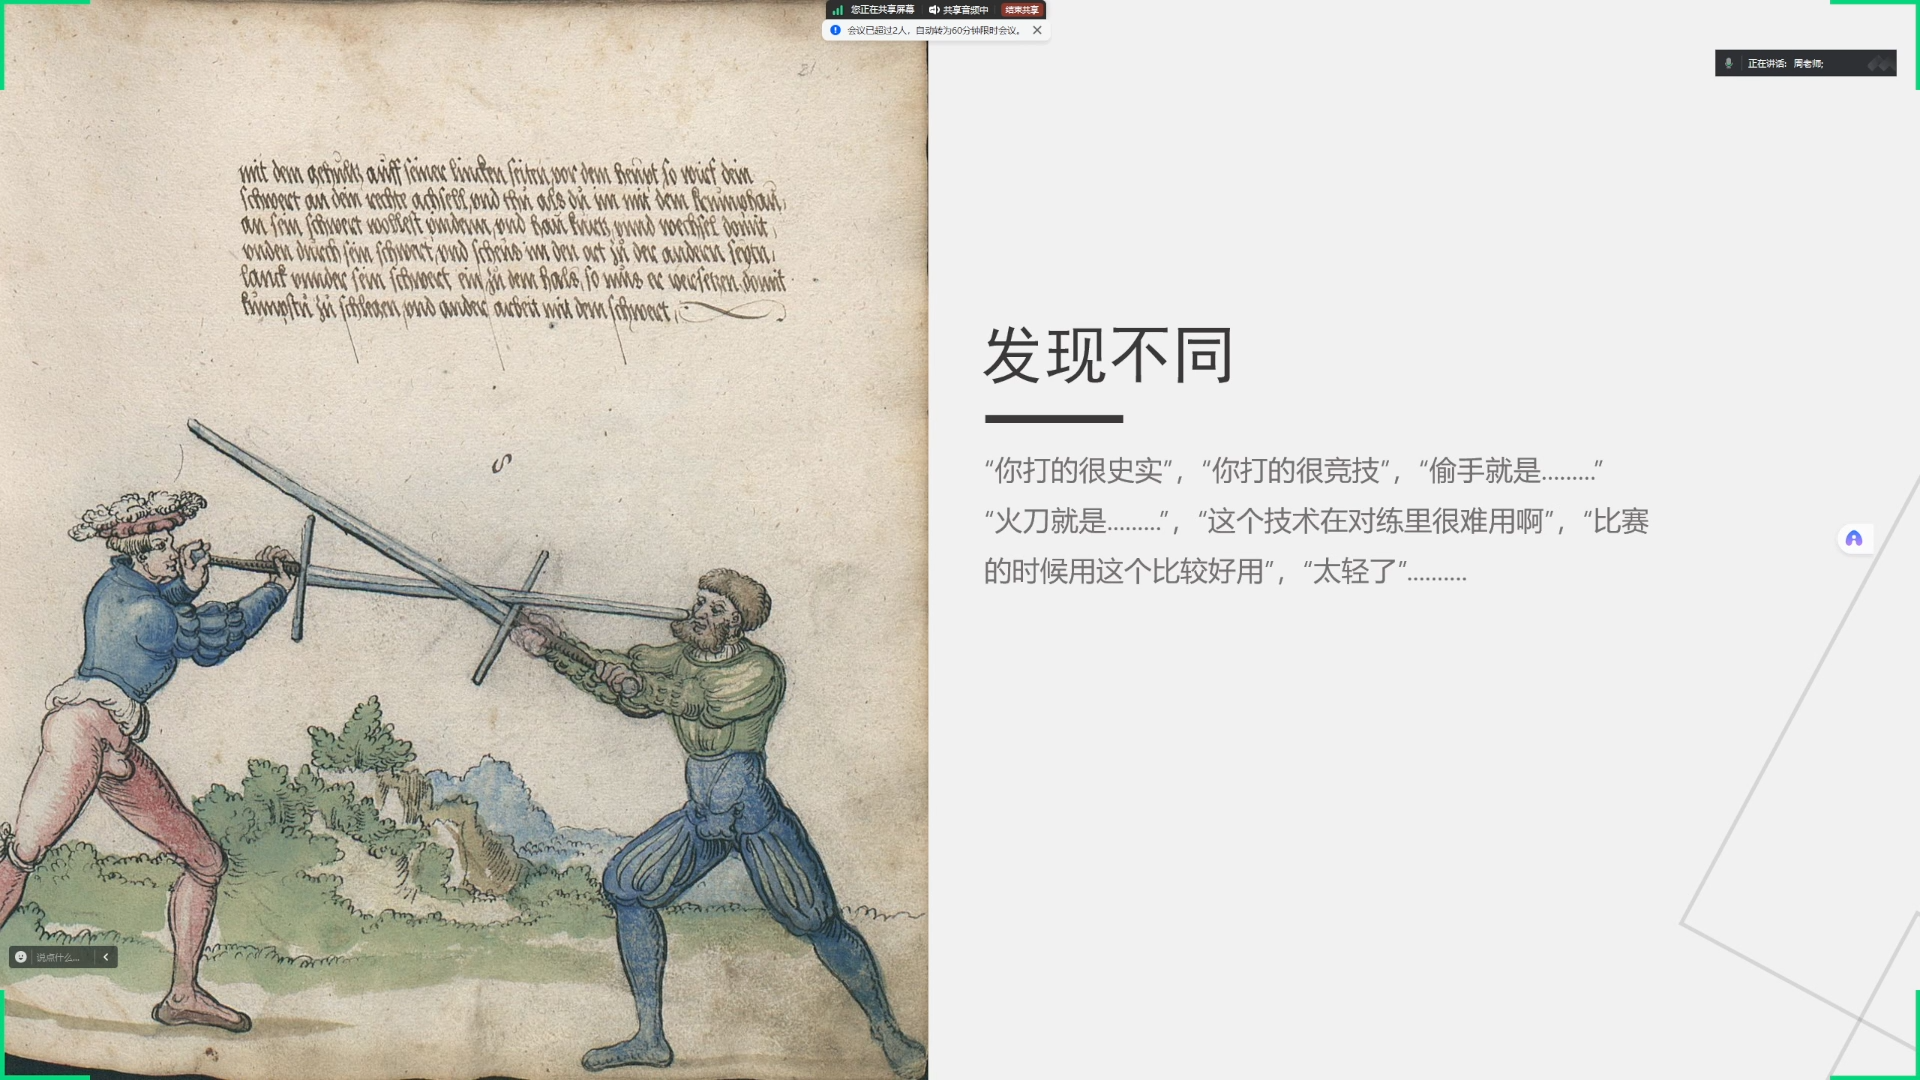 您正在共享屏幕 共享音频中 结束共享
会议已超过2人，自动转为60分钟限时会议。
正在讲话: 周老师;
21
mit dem gehultz auff seiner lincken seiten vor dem heupt so wirf dein
schwert an dein rechte achsell, und thu als du im mit dem krumphau,
an sein schwert wollest binden, und hau kurtz unnd wechsel domit
unden durch sein schwert, und scheus im den ort zu der andern seytn,
lanck under sein schwert ein zu dem hals, so mus er versetzen, domit
kumpstu zu schlegen, und ander arbeit mit dem schwert,
发现不同
“你打的很史实”，“你打的很竞技”，“偷手就是.........”
“火刀就是.........”，“这个技术在对练里很难用啊”，“比赛
的时候用这个比较好用”，“太轻了”..........
说点什么...